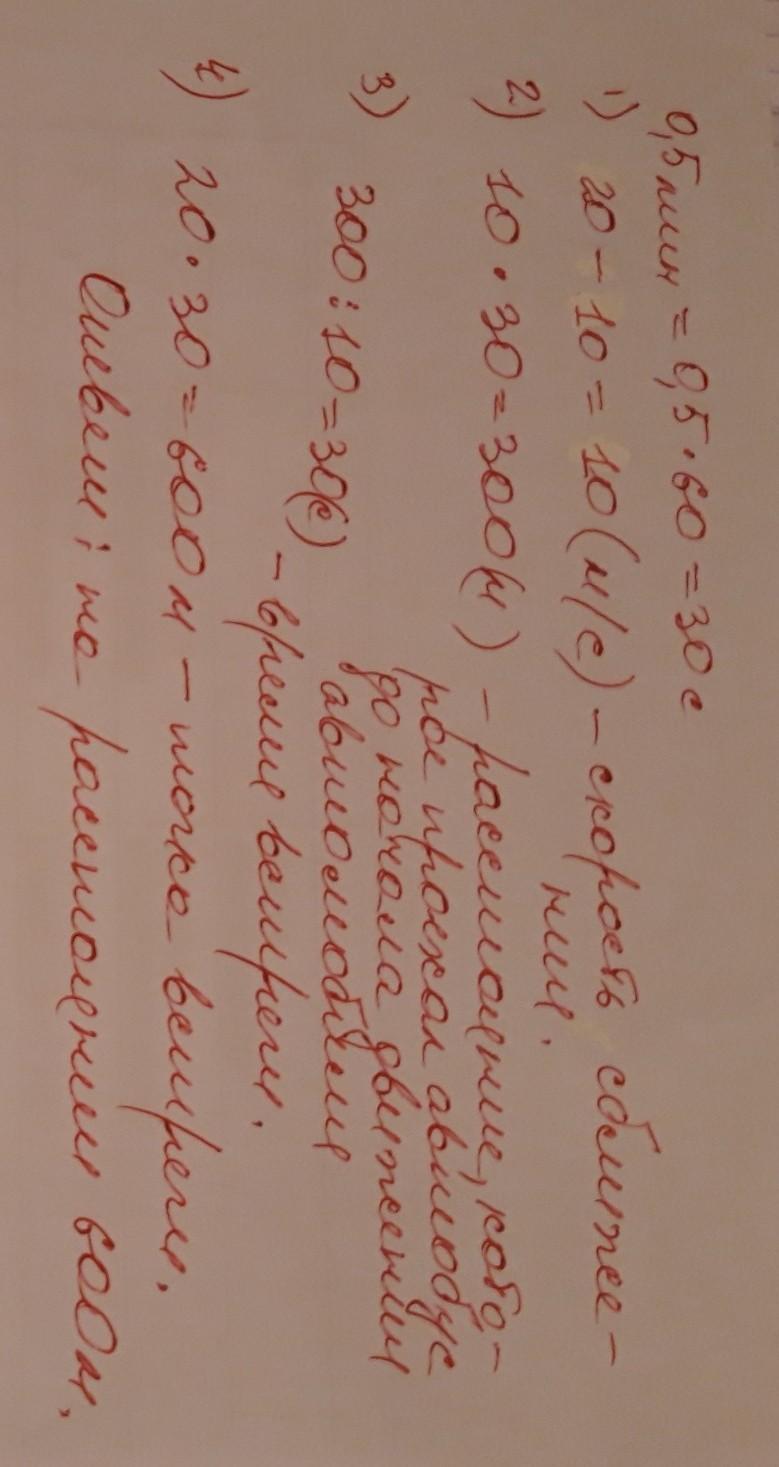 0,5 мин = 0,5 · 60 = 30 с
1) 20 – 10 = 10 (м/с) – скорость сближе-
ния.
2) 10 · 30 = 300 (м) – расстояние, кото-
рое проехал автобус
до начала движения
автомобиля
3) 300 : 10 = 30(с)
– время встречи.
4) 20 · 30 = 600 м – точка встречи.
Ответ: на расстоянии 600 м.